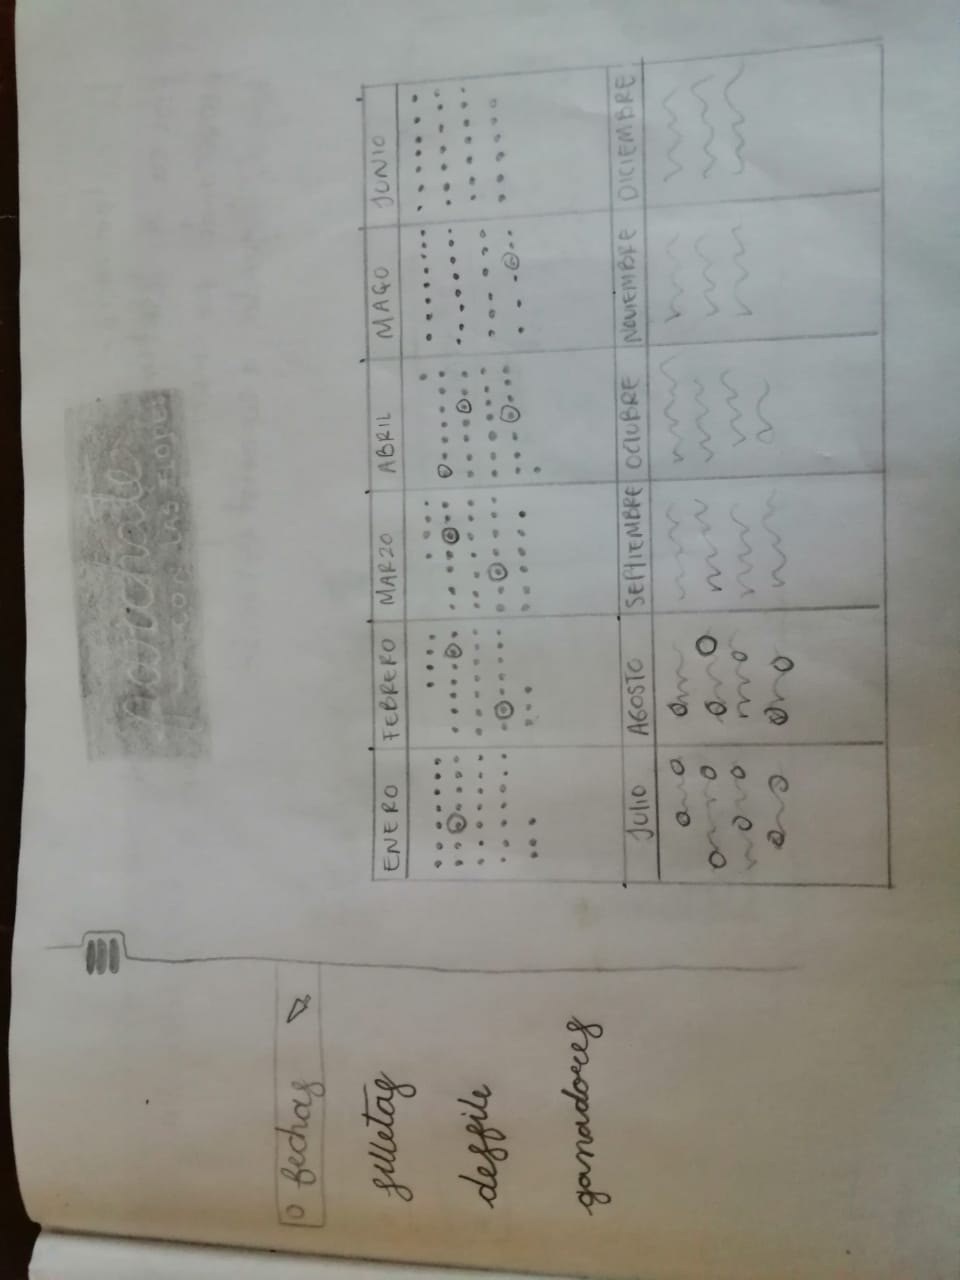 parchate
CON LAS FLORES
fechas
silletas
desfile
ganadores
ENERO FEBRERO MARZO ABRIL MAYO JUNIO
JULIO AGOSTO SEPTIEMBRE OCTUBRE NOVIEMBRE DICIEMBRE